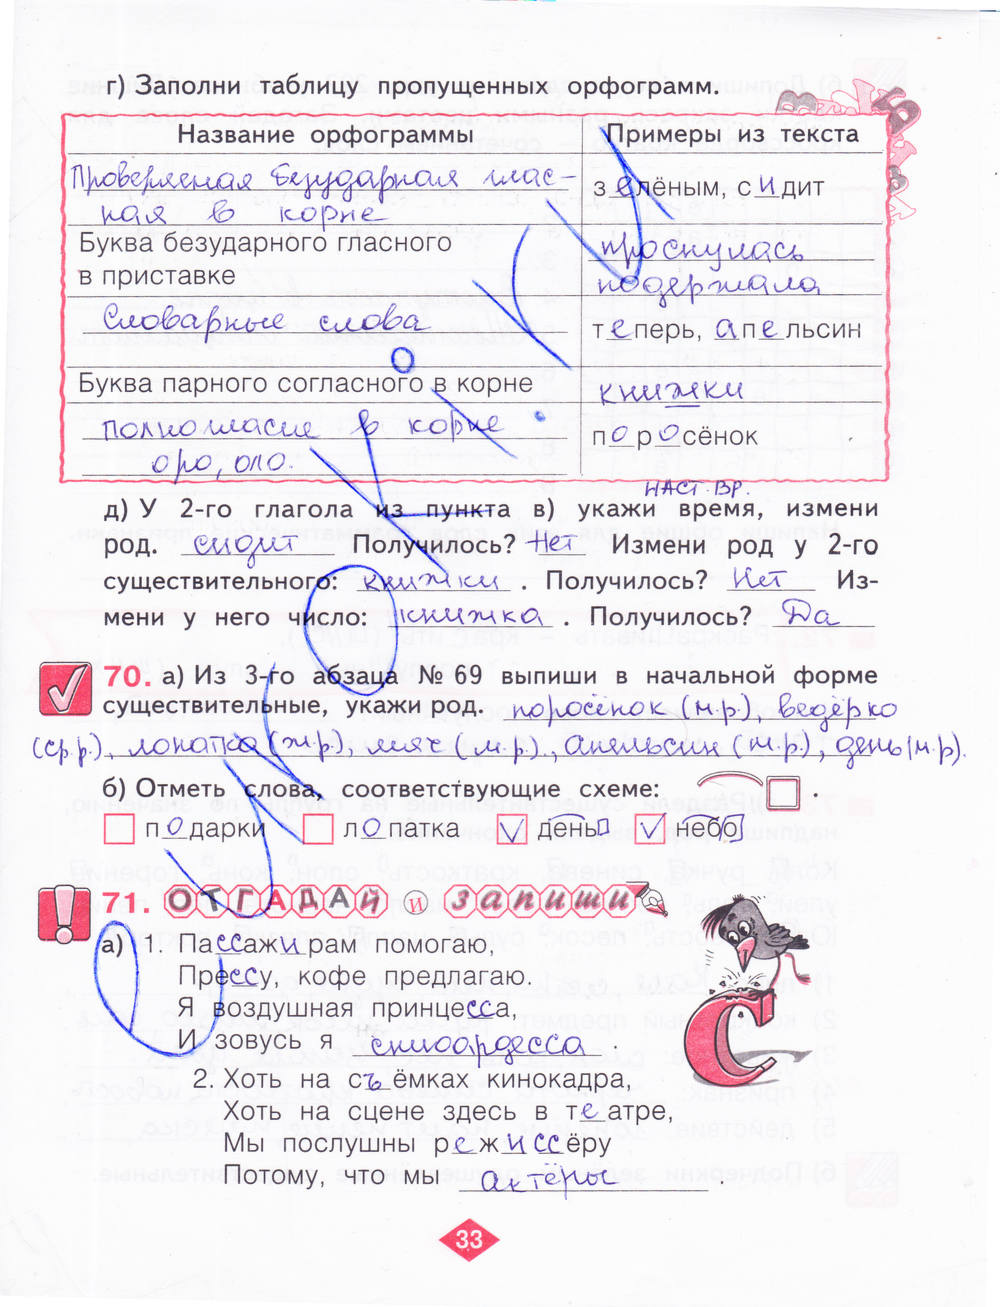 г) Заполни таблицу пропущенных орфограмм.
Название орфограммы Примеры из текста
Проверяемая безударная глас-
ная в корне
зелёным, сидит
Буква безударного гласного
в приставке
проснулась
подержала
Словарные слова
теперь, апельсин
Буква парного согласного в корне
книжки
полногласие в корне
оро, оло.
поросёнок
наст. вр.
д) У 2-го глагола из пункта в) укажи время, измени
род. сидит Получилось? Нет Измени род у 2-го
существительного: книжки. Получилось? Нет Из-
мени у него число: книжка. Получилось? Да
70. а) Из 3-го абзаца № 69 выпиши в начальной форме
существительные, укажи род. поросёнок (м.р), ведёрко
(ср.р.), лопатка (ж.р), мяч (м.р.), апельсин (м.р.), день (м.р).
б) Отметь слова, соответствующие схеме:
подарки лопатка день небо
71. ОТГАДАЙ и запиши
а) 1. Пассажирам помогаю,
Прессу, кофе предлагаю.
Я воздушная принцесса,
И зовусь я стюардесса.
2. Хоть на съёмках кинокадра,
Хоть на сцене здесь в театре,
Мы послушны режиссёру
Потому, что мы актёры.
33